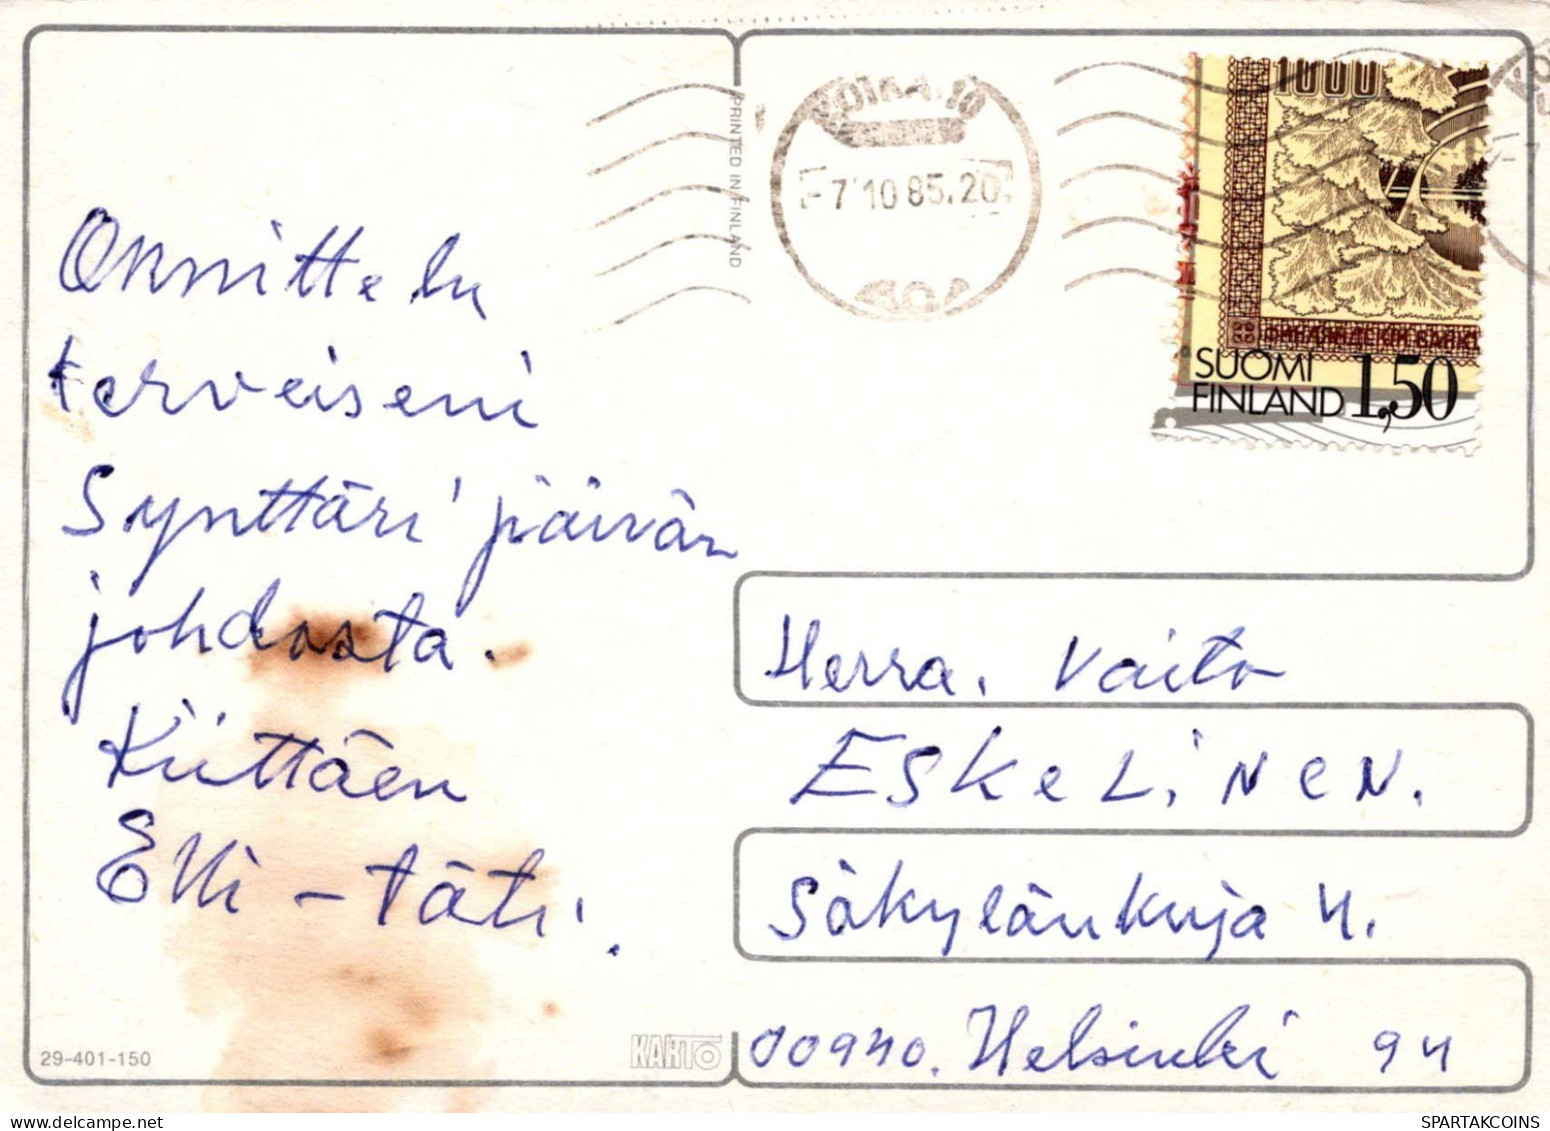 Onnittelu
terveiseni
Synttäri päivän
johdosta.
Kiittäen
Elli-täti.
PRINTED IN FINLAND
-7.10 85.20
1000
SUOMI
FINLAND 1,50
Herra. Vaito
ESKeLiNeN.
Säkylänkuja 4.
00940. Helsinki 94
29-401-150
KARTO
SPARTAKCOINS.COM